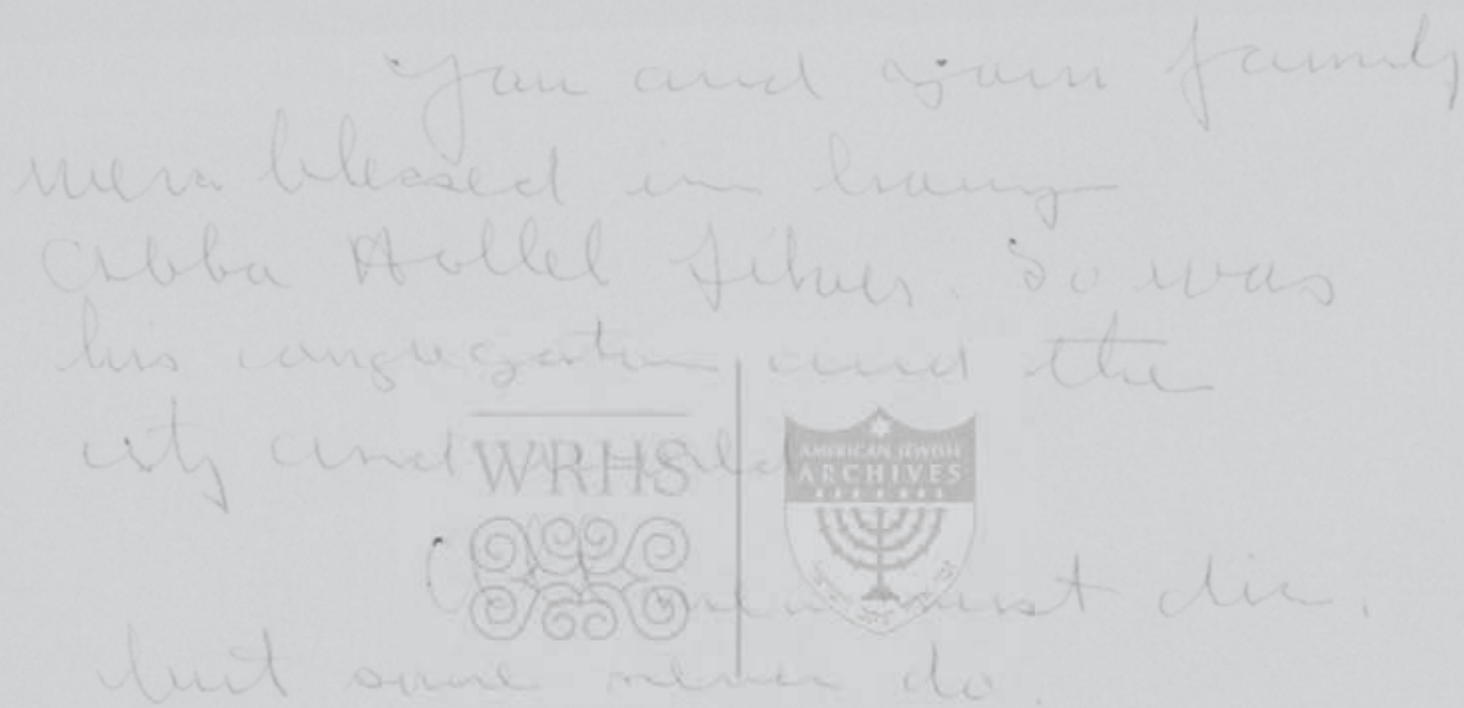 You and your family
were blessed in having
Abba Hillel Silver. So was
his congregation and the
city and world
WRHS
AMERICAN JEWISH
ARCHIVES
men must die.
but some never do.